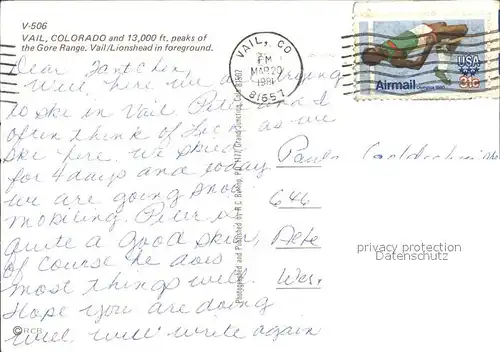 V-506
VAIL, COLORADO and 13,000 ft. peaks of
the Gore Range. Vail/Lionshead in foreground.
VAIL, CO
PM
MAR 20
1981
81657
USA
31c
Airmail
Olympics 1980
Dear
Well here we are trying
to ski in Vail. Peter and I
often think of as we
ski here. We skied
for 4 days and today
we are going snow
mobiling. Peter is
quite a good skier,
of course he does
most things well.
Hope you are doing
well. Will write again
Photographed and Published by R.C. Bishop, P.O. Grand Junction, Colo. 81502
646
privacy protection
Datenschutz
© RCB